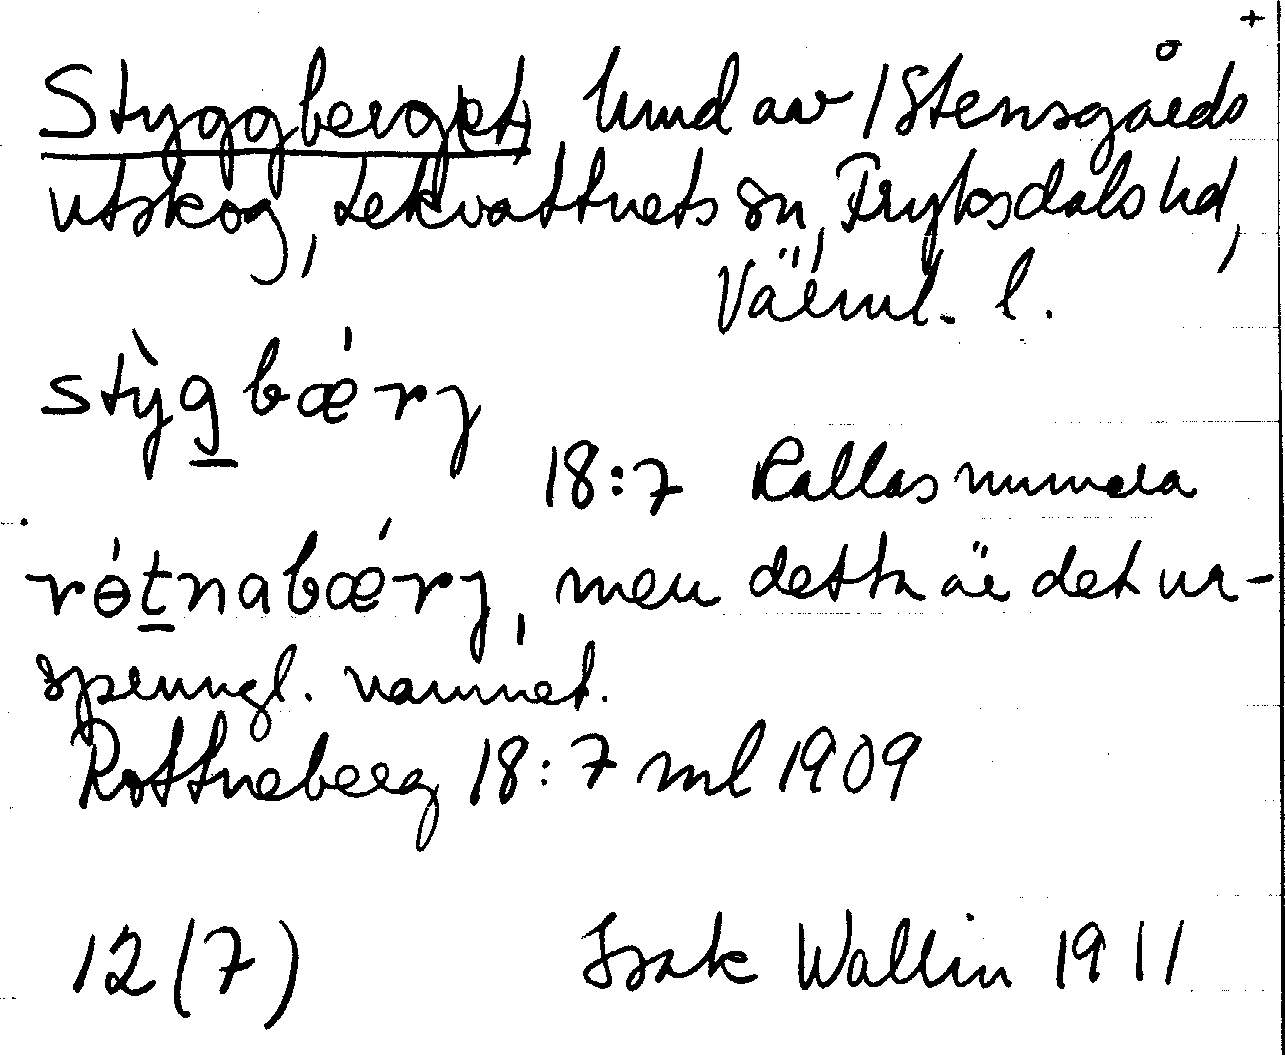 +
Styggberget, hmd av 1 Stensgårds
utskog, Lekvattnets sn, Fryksdals hd,
Värml. l.
stỳgbǽrj
18:7 Kallas numera
rǿtnabǽrj, men detta är det ur-
sprungl. namnet.
Rottneberg 18:7 ml 1909
12(7) Isak Wallin 1911